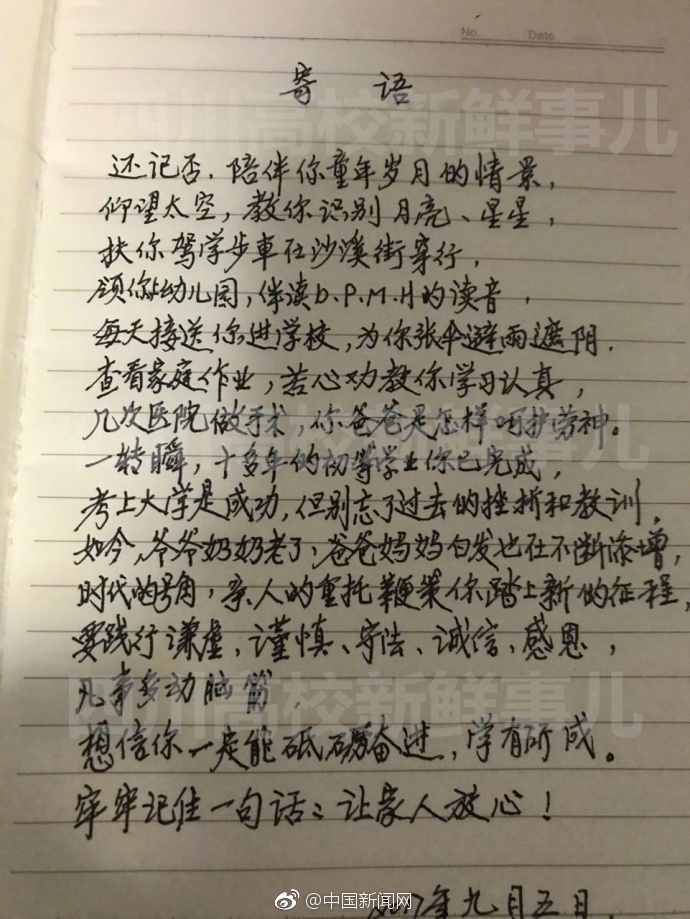 No.  Date
寄 语
还记否，陪伴你童年岁月的情景，
仰望太空，教你识别月亮、星星，
扶你驾学步車在沙溪街穿行，
领你上幼儿园，伴读b.P.M.H的读音，
每天接送你进学校，为你张伞避雨遮阴．
查看家庭作业，苦心功教你学习认真，
几次医院做手术，你爸爸是怎样呵护劳神。
一转瞬，十多年的初等学业你已完成，
考上大学是成功，但别忘了过去的挫折和教训，
如今，爷爷奶奶老了，爸爸妈妈白发也在不断添增，
时代的号角，亲人的重托鞭策你踏上新的征程，
要践行谦虚、谨慎、守法、诚信、感恩，
凡事多动脑筋，
想信你一定能砥砺奋进，学有所成。
牢牢记住一句话：让家人放心！
2017年九月五日
四川高校新鲜事儿
四川高校新鲜事儿
@中国新闻网